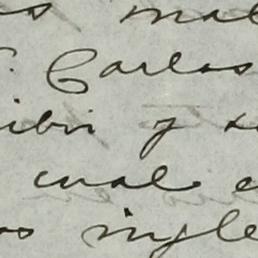 s mal
. Carlos
ibir y s
cual e
os ingle